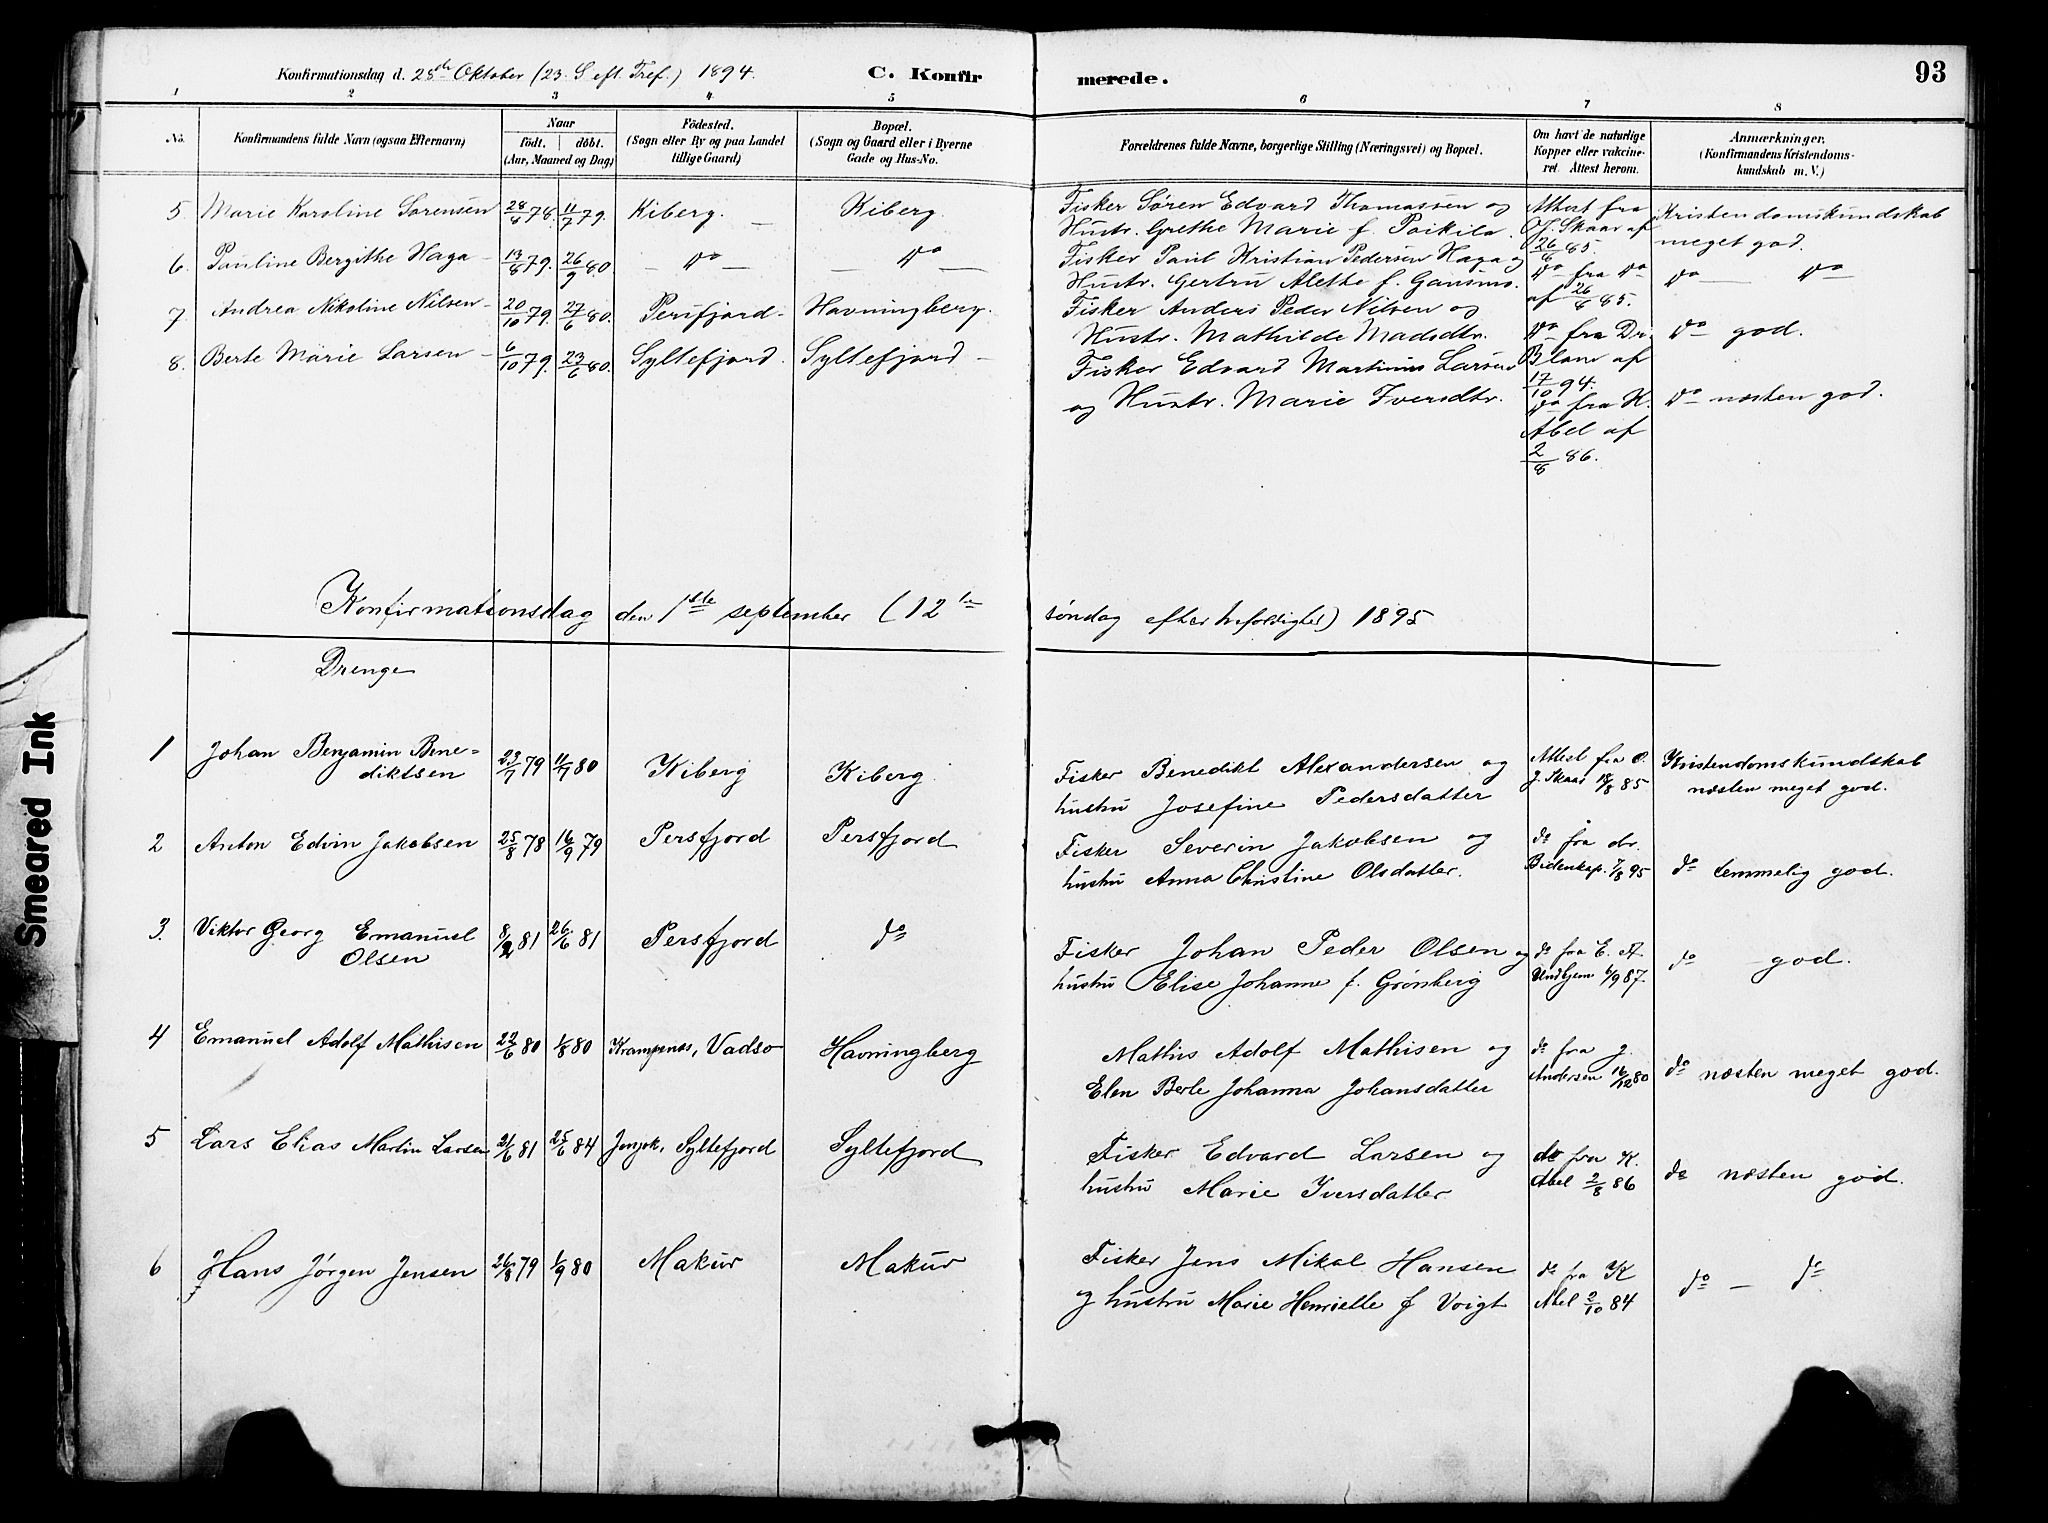 Konfirmationsdag d. 28de Oktober (23. S. eft. Tref.) 1894. C. Konfirmerede. 93
1 2 3 4 5 6 7 8
No. Konfirmandens fulde Navn (ogsaa Efternavn) Naar födt. döbt. (Aar, Maaned og Dag) Födested. (Sogn eller By og paa Landet tillige Gaard) Bopæl. (Sogn og Gaard eller i Byerne Gade og Hus-No. Forældrenes fulde Navne, borgerlige Stilling (Næringsvei) og Bopæl. Om havt de naturlige Kopper eller vakcineret. Attest herom. Anmærkninger, (Konfirmandens Kristendomskundskab m. V.)
5. Marie Karoline Sørensen 28/8 78. 11/7 79. Kiberg. Kiberg. Fisker Søren Edvard Thomassen og Hustr. Grethe Marie f. Poikila. Attest fra O. J. Skaar af 26/8 85. Kristendomskundskab meget god.
6. Pauline Bergithe Haga 13/8 79. 26/9 80 Do Do Fisker Paul Kristian Pedersen Haga og Hustr. Gertru Alethe f. Do fra Do af 26/8 85. Do Do
7. Andrea Nikoline Nilsen 20/10 79. 27/6 80. Persfjord. Havningberg. Fisker Anders Peder Nilsen og Hustr. Mathilde Madsdtr. Do fra Dr. af 17/10 94. Do god.
8. Berte Marie Larsen 6/10 79. 23/6 80. Syltefjord. Syltefjord Fisker Edvard Martinus Larsen og Hustr. Marie Iversdtr. Do fra K. Abel af 2/8 86. Do næsten god.
Konfirmationsdag den 1ste september (12te søndag efter trefoldighet) 1895
Drenge
1 Johan Benjamin Benediktsen 23/7 79 11/7 80 Kiberg Kiberg Fisker Benedikt Alexandersen og hustru Josefine Pedersdatter Attest fra O. J. Skaar 18/8 85 Kristendomskundskab næsten meget god.
2 Anton Edvin Jakobsen 25/8 78 16/9 79 Persfjord Persfjord Fisker Severin Jakobsen og hustru Anna Christine Olsdatter. do fra dr. Bidenkap. 7/8 95 do temmelig god.
3. Viktor Georg Emanuel Olsen 8/2 81 26/6 81 Persfjord do Fisker Johan Peder Olsen og hustru Elise Johanne f. Grønberg do fra E. A. Undhjem 6/9 87. do god.
4 Emanuel Adolf Mathisen 22/6 80 1/8 80 Krampenæs, Vadsø Havningberg Mathis Adolf Mathisen og Elen Berte Johanna Johansdatter do fra J. Andersen 16/12 80 do næsten meget god.
5 Lars Elias Martin Larsen 21/6 81 25/6 84 Syltefjord Syltefjord Fisker Edvard Larsen og hustru Marie Iversdatter do fra K. Abel 2/8 86 do næsten god.
6 Hans Jørgen Jensen 26/8 79 1/9 80 Makur Makur Fisker Jens Mikal Hansen og hustru Marie Henriette f Voigt do fra K Abel 2/10 84 do - do
Smeared Ink